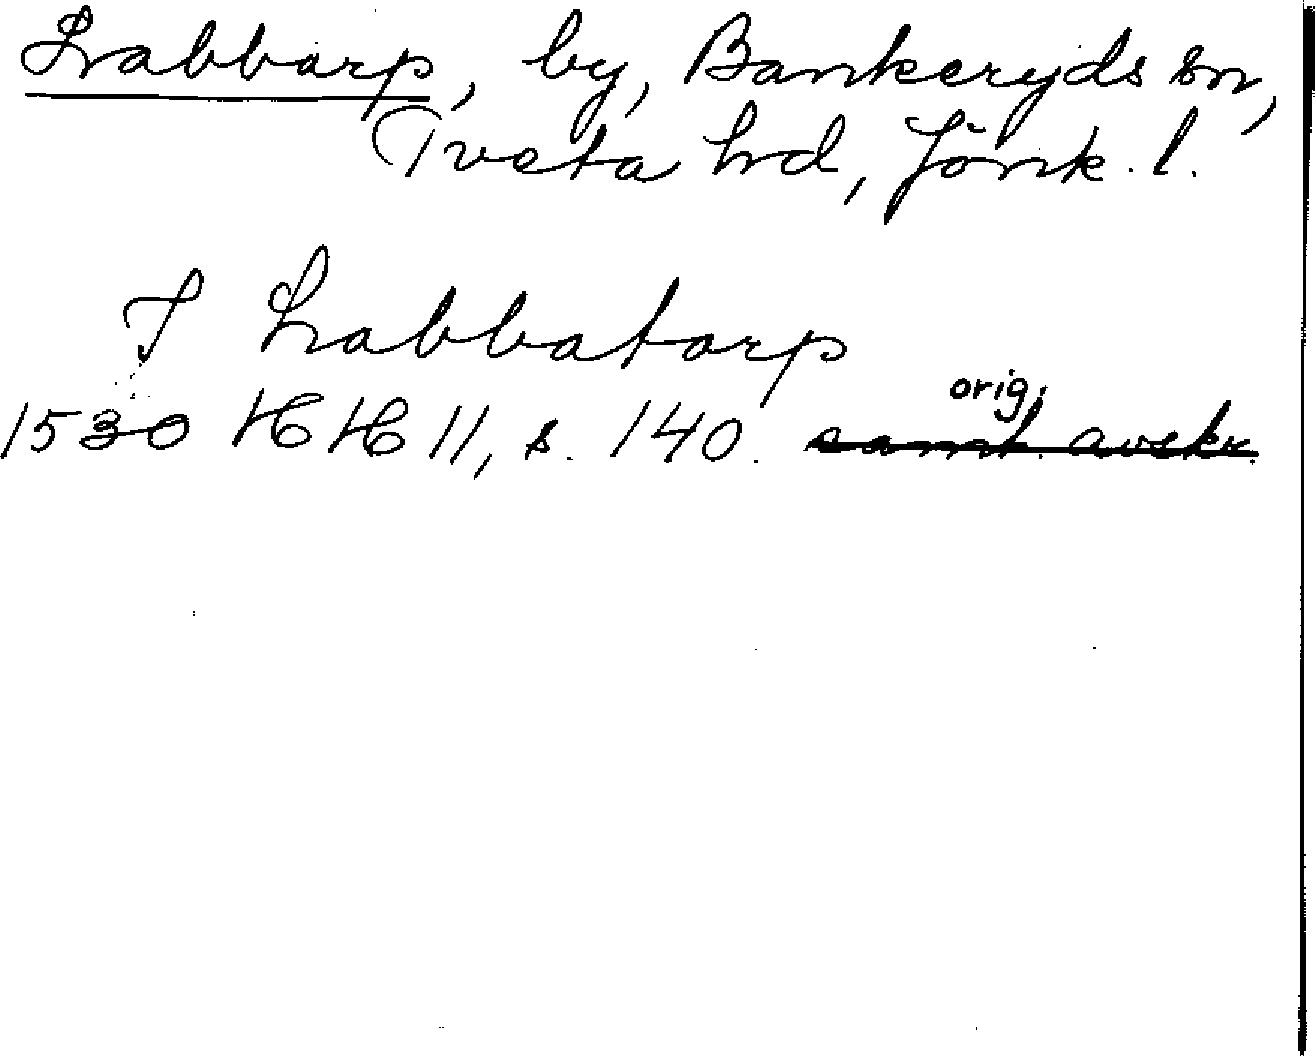 Labbarp, by, Bankeryds sn,
Tveta hd, Jönk. l.
I Labbatarp
orig.
1530 HH 11, s. 140. samt. avskr.